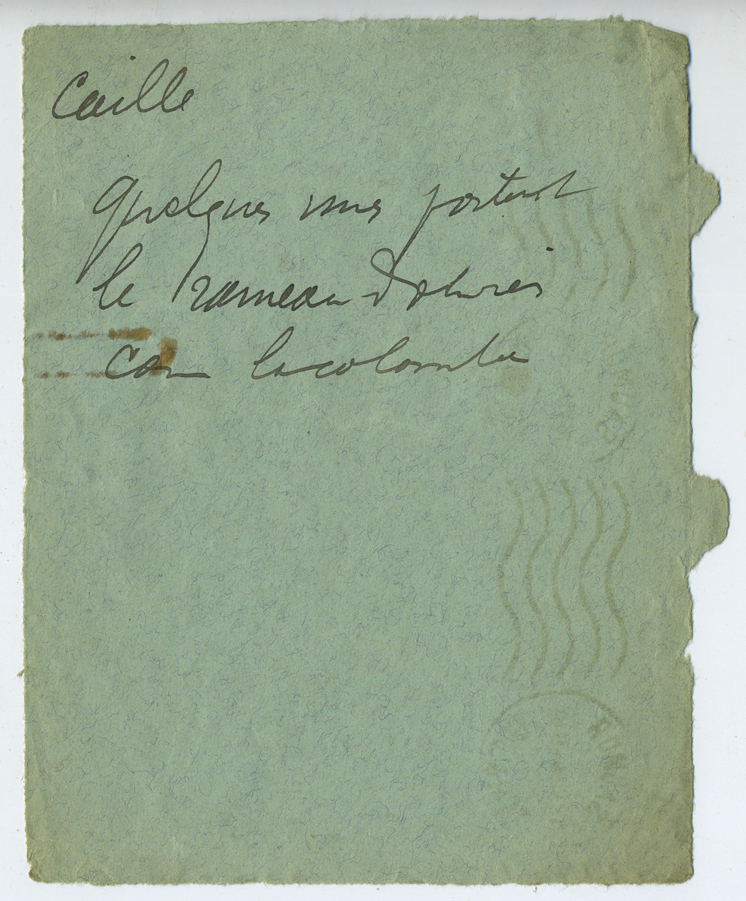 Caille
quelques unes portent
le rameau d'olivier
com la colombe